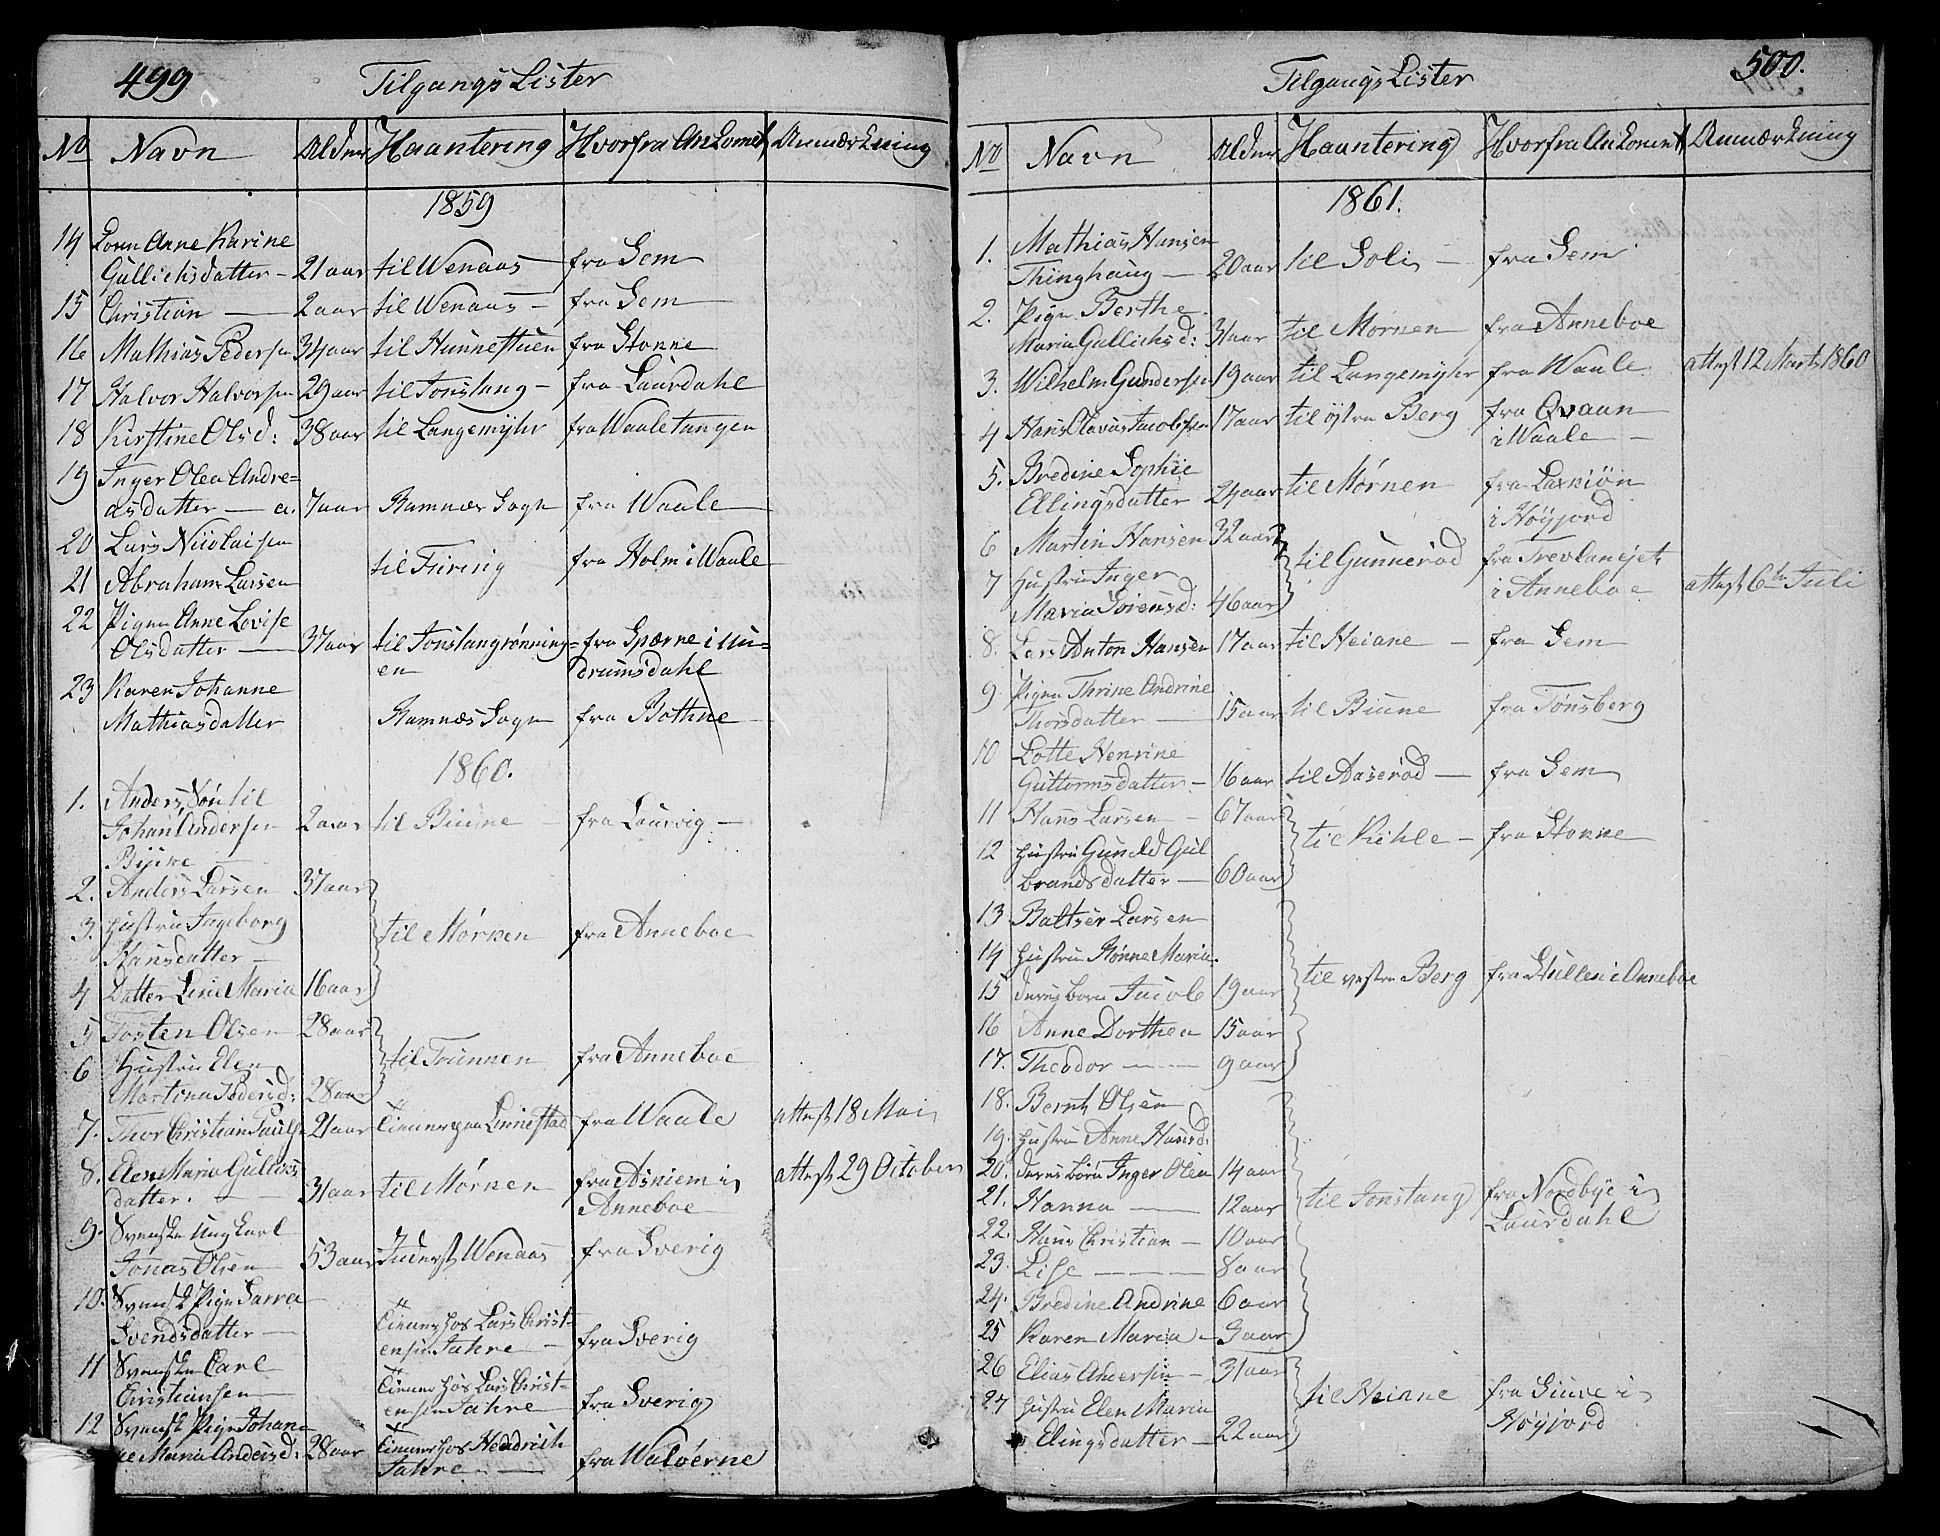 499
Tilgangs Lister
No Navn Alder Haantering Hvorfra Ankomet Anmærkning
1859
14 Anne Karine
Gullichsdatter — 21 aar til Wenaas — fra Sem
15 Christian — 2 aar til Wenaas — fra Sem
16 Mathias Pedersen 34 aar til Hunnestuen fra Stonne
17 Halvor Halvorsen 29 aar til Jonstang — fra Laurdahl
18 Kirstine Olsd: 38 aar til Langemyhr fra Waaletangen
19 Inger Olea Andre=
asdatter — a. 7 aar Ramnæs Sogn fra Waale
20 Lars Nicolaisen
til Firing fra Holm i Waale
21 Abraham Larsen
22 Pigen Anne Lovise
Olsdatter — 37 aar til Jonstangrønning= fra Spærne i Un=
en drumsdahl
23 Karen Johanne
Mathiasdatter Ramnæs Sogn fra Bothne
1860.
1. Anders, Søn til
Johan Andersen 2 aar til Biune — fra Laurvig —
2. Anders Larsen 37 aar
3. Hustru Ingeborg
til Mørken fra Anneboe
Hansdatter —
4 Datter Line Maria 16 aar
5 Tosten Olsen 28 aar
6 Hustru Elen
til Trunnen fra Anneboe
Martina Pedersd: 28 aar
7. Thor Christian Pauls 21 aar Linnestad fra Waale attest 18 Mai
8. Elen Maria Gullicks
datter. — 31 aar til Mørken fra Asniem i attest 29 October
Anneboe
9. Svenske Ungkarl
Jonas Olsen 53 aar Inderst Wenaas fra Sverig
10. Svensk Pige Sarra
Svendsdatter — Tiener hos Lars Christ-
ensen Jahre — fra Sverig
11 Svenske Carl
Christiansen — Tiener hos Lars Christ-
ensen Jahre — fra Sverig
12 Svensk Pige Johan-
ne Maria Andersd: 28 aar Tiener hos Hendrich
Jahre — fra Waløerne
500.
Tilgangs Lister
No Navn Alder Haantering Hvorfra Ankomet Anmærkning
1861.
1. Mathias Hansen
Thinghaug — 20 aar til Soli — fra Sem
2. Pigen Berthe
Maria Gullichsd: 31 aar til Mørken fra Anneboe
3. Wilhelm Gundersen 19 aar til Langemyhr fra Waale attest 12 Marts 1860
4 Hans Olavus Jacobsen 17 aar til østre Berg fra Qvaan
i Waale —
5. Bredine Sophie
Ellingsdatter 24 aar til Mørken fra Laxiiøn
i Høyjord
6 Martin Hansen 32 aar
til Gunnerød fra Trevlaneiet
7 Hustru Inger
i Anneboe attest 6te Juli
Maria Sørensd: 46 aar
8. Lars Anton Hansen 17 aar til Heiane — fra Sem
9 Pigen Thrine Andrine
Thorsdatter — 15 aar til Biune fra Tønsberg
10 Lotte Henrine
Guttormsdatter — 16 aar til Aaserød — fra Sem
11 Hans Larsen — 67 aar
til Kihle — fra Stonne
12 Hustru Guneld Gul
brandsdatter — 60 aar
13 Baltser Larsen
14 Hustru Rønne Maria.
til vestre Berg fra Hullen i Anneboe
15 deres børn Jacob 19 aar
16 Anne Dorthea 15 aar
17. Theodor — 9 aar
18. Bernt Olsen
19. Hustru Anne Hansd:
20. deres børn Inger Olea 14 aar
til Jonstang fra Nordbye i
21. Hanna — 12 aar
Laurdahl
22. Hans Christian — 10 aar
23. Lise — 8 aar
24. Bredine Andrine 6 aar
25 Karen Maria — 3 aar
26 Elias Andersen — 31 aar
til Heiane fra Siuve i
27 Hustru Elen Maria
Høyjord
Elingsdatter — 22 aar